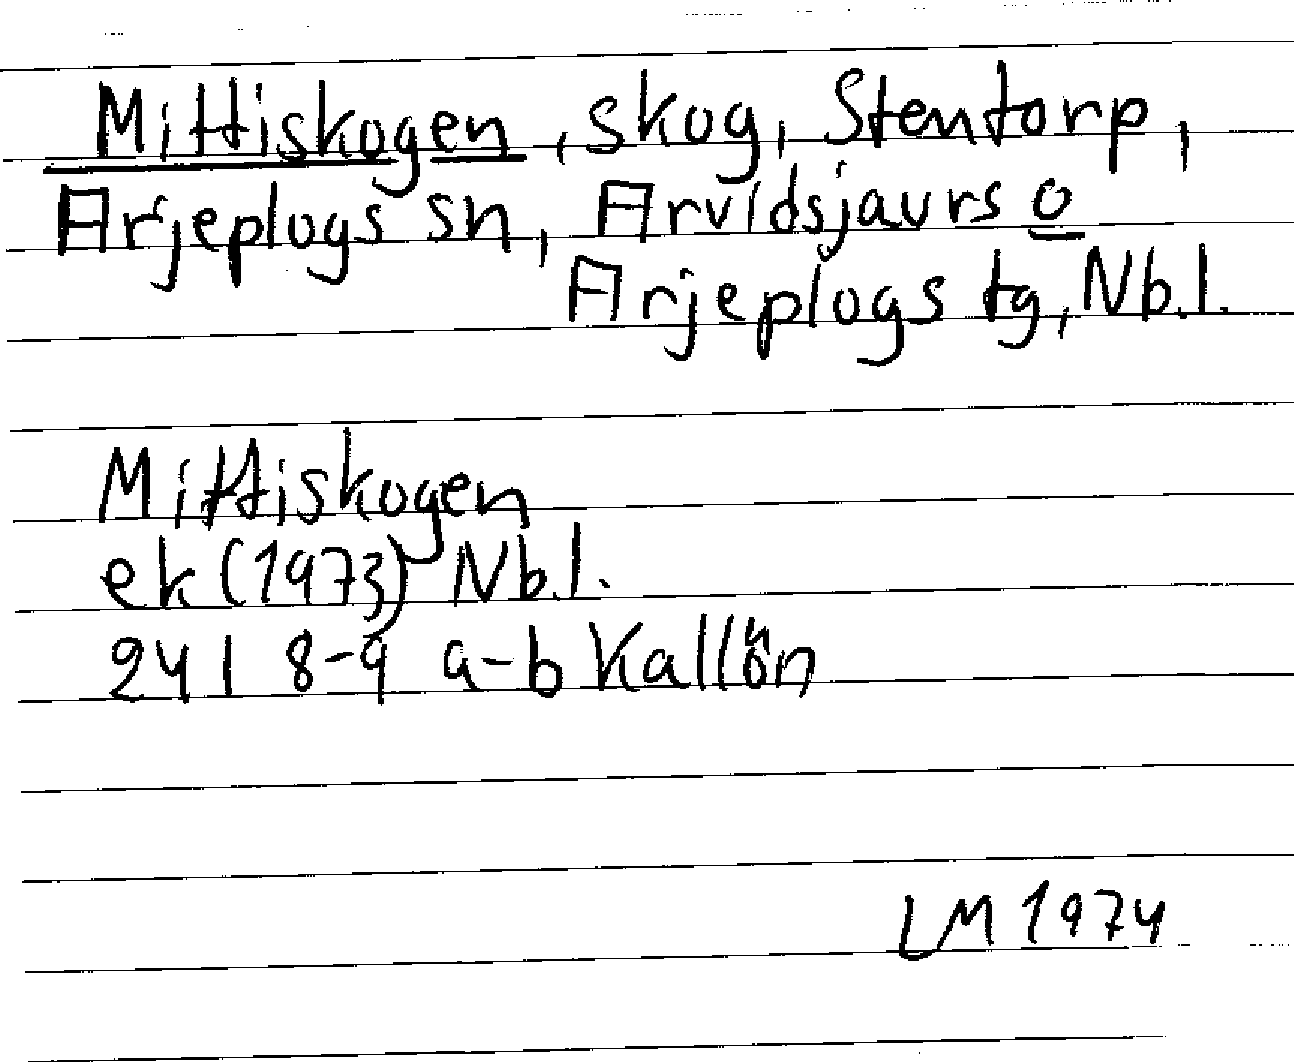 Mittiskogen, skog, Stentorp,
Arjeplogs sn, Arvidsjaurs o
Arjeplogs tg, Nb.l.
Mittiskogen
ek (1973) Nb.l.
24 I 8-9 a-b Kallön
LM 1974